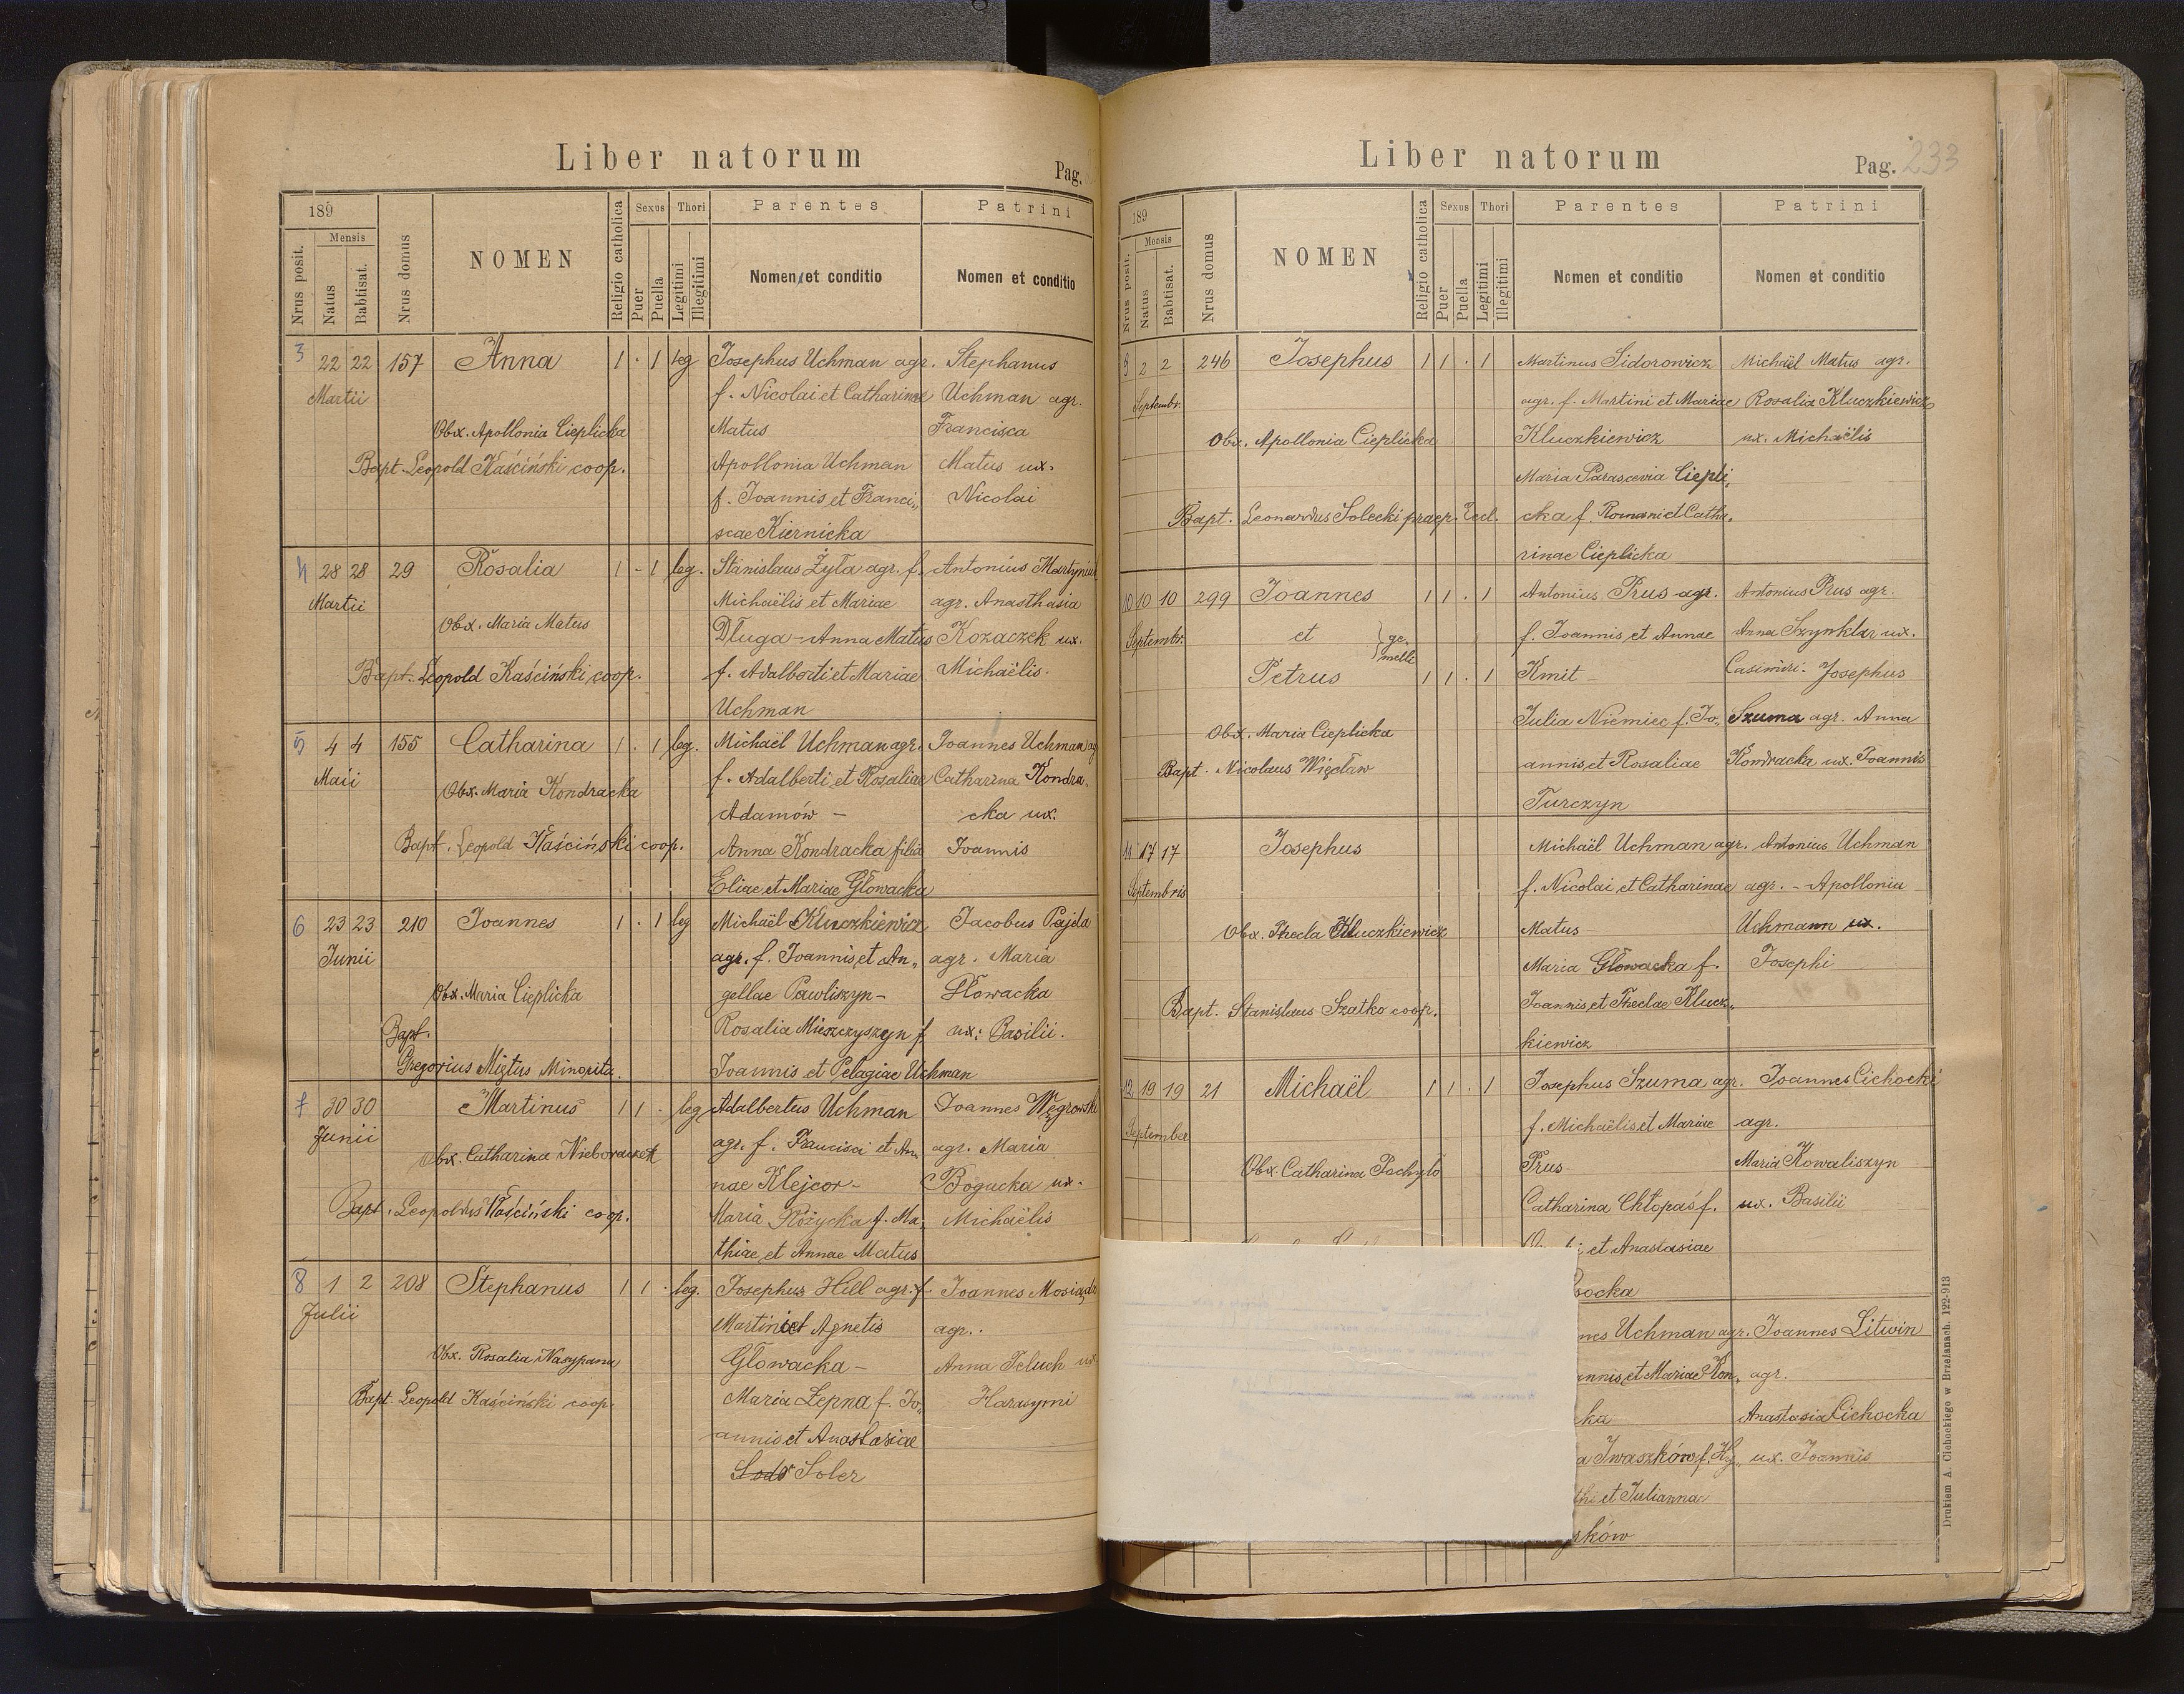 Liber natorum
Pag.
189
Mensis
Nrus posit.
Natus
Babtisat.
Nrus domus
NOMEN
Religio catholica
Sexus
Puer
Puella
Thori
Legitimi
Illegitimi
Parentes
Nomen et conditio
Patrini
Nomen et conditio
3 22 22 157 Anna 1 · 1 leg Josephus Uchman agr. Stephanus
Martii f. Nicolai et Catharinae Uchman agr.
Obx. Apollonia Cieplicka Matus Francisca
Bapt. Leopold Kaściński coop. Apollonia Uchman Matus ux.
f. Joannis et Franci„ Nicolai
scae Kiernicka
4 28 28 29 Rosalia 1 - 1 leg. Stanislaus Żyła agr. f. Antonius
Martii Michaëlis et Mariae agr. Anasthasia
Obx. Maria Matus Długa - Anna Matus Kozaczek ux.
Bapt. Leopold Kaściński coop. f. Adalberti et Mariae Michaëlis.
Uchman
5 4 4 155 Catharina 1 · 1 leg. Michaël Uchman agr. Joannes Uchman ag
Maii f. Adalberti et Rosaliae Catharina Kondra„
Obx. Maria Kondracka Adamów - cka ux.
Bapt. Leopold Kaściński coop. Anna Kondracka filia Joannis
Eliae et Mariae Głowacka
6 23 23 210 Joannes 1 · 1 leg Michaël Kluczkiewicz Jacobus Pajda
Junii agr. f. Joannis et An„ agr. Maria
Obx. Maria Cieplicka gellae Pawliszyn - Głowacka
Bapt. Rosalia Mieszczyszyn f. ux. Basilii.
Gregorius Miętus Minorita. Joannis et Pelagiae Uchman
7 30 30 Martinus 1 1 · leg Adalbertus Uchman Joannes Węgrowski
Junii agr. f. Francisci et An„ agr. Maria
Obx. Catharina Nieboraczek nae Klejcor - Bogucka ux.
Bapt. Leopoldus Kaściński coop. Maria Różycka f. Ma„ Michaëlis
thiae et Annae Matus
8 1 2 208 Stephanus 1 1 · leg. Josephus Hill agr. f. Joannes
Julii Martini et Agnetis agr.
Obx. Rosalia Głowacka - Anna Peluch ux
Bapt. Leopold Kaściński coop. Maria Lepna f. Jo„ Harasymi
annis et Anastasiae
Soler
Liber natorum
Pag. 233
189
Mensis
Nrus posit.
Natus
Babtisat.
Nrus domus
NOMEN
Religio catholica
Sexus
Puer
Puella
Thori
Legitimi
Illegitimi
Parentes
Nomen et conditio
Patrini
Nomen et conditio
9 2 2 246 Josephus 1 1 · 1 Martinus Sidorowicz Michaël Matus agr.
Septembr. agr. f. Martini et Mariae Rosalia Kluczkiewicz
Obx. Apollonia Cieplicka Kluczkiewicz ux. Michaëlis
Maria Parascevia Ciepli„
Bapt. Leonardus Solecki praep. Eccl. cka f. Romani et Catha„
rinae Cieplicka
10 10 10 299 Joannes 1 1 · 1 Antonius Prus agr. Antonius Prus agr.
Septembr. et ge„ f. Joannis et Annae Anna Szynklar ux.
melli
Petrus 1 1 · 1 Kmit - Casimiri. Josephus
Julia Niemiec f. Jo„ Szuma agr. Anna
Obx. Maria Cieplicka
Bapt. Nicolaus Więcław annis et Rosaliae Kondracka ux. Joannis
Turczyn
11 17 17 Josephus Michaël Uchman agr. Antonius Uchman
Septembris f. Nicolai et Catharinae agr. - Apollonia
Obx. Thecla Kluczkiewicz Matus Uchmann ux.
Maria Głowacka f. Josephi
Bapt. Stanislaus Szatko coop. Joannis et Theclae Klucz„
kiewicz
12 19 19 21 Michaël 1 1 · 1 Josephus Szuma agr. Joannes Cichocki
September f. Michaëlis et Mariae agr.
Obx. Catharina Pochyło Prus Maria Kowaliszyn
Catharina Chłopaś f. ux. Basilii
et Anastasiae
ocka
nes Uchman agr. Joannes Litwin
annis et Mariae Kon„ agr.
ka Anastasia Cichocka
a Iwaszków f. Hy„ ux. Joannis
thi et Julianna
ków
Drukiem A. Cichockiego w Brzeżanach. 122-913